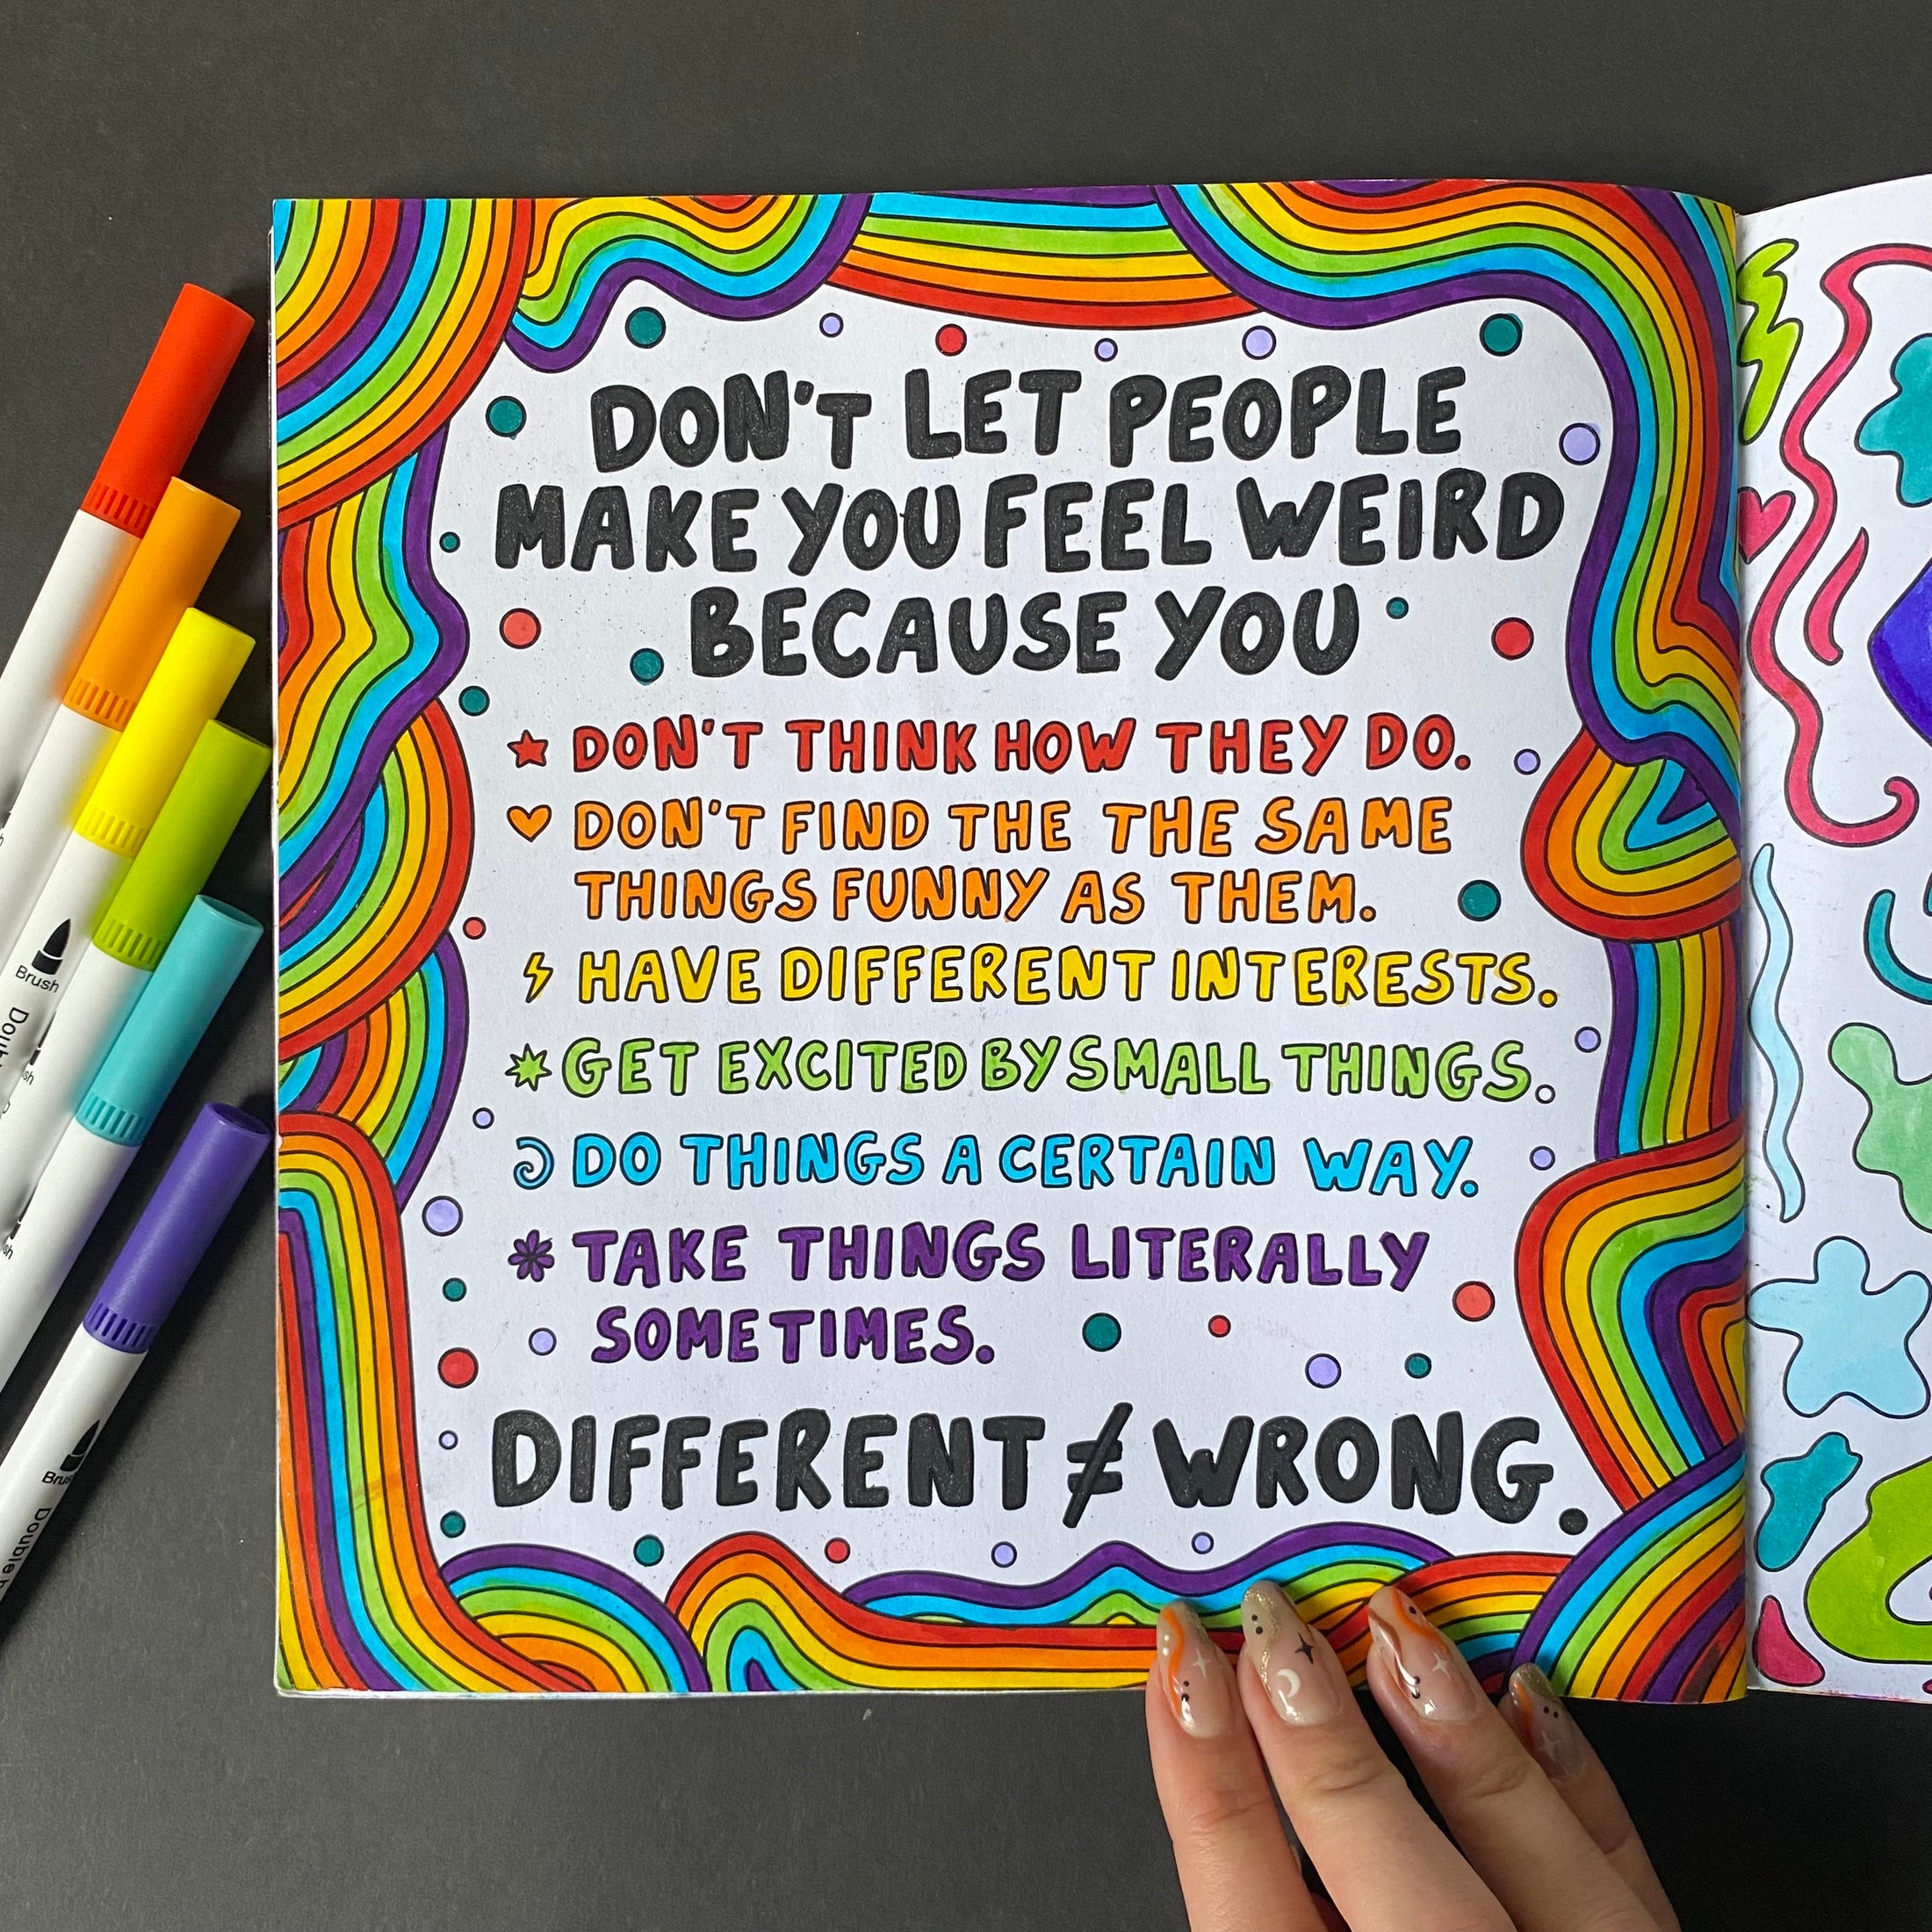 DON'T LET PEOPLE
MAKE YOU FEEL WEIRD
BECAUSE YOU
DON'T THINK HOW THEY DO.
DON'T FIND THE THE SAME
THINGS FUNNY AS THEM.
HAVE DIFFERENT INTERESTS.
GET EXCITED BY SMALL THINGS.
DO THINGS A CERTAIN WAY.
TAKE THINGS LITERALLY
SOMETIMES.
DIFFERENT ≠ WRONG.
Brush